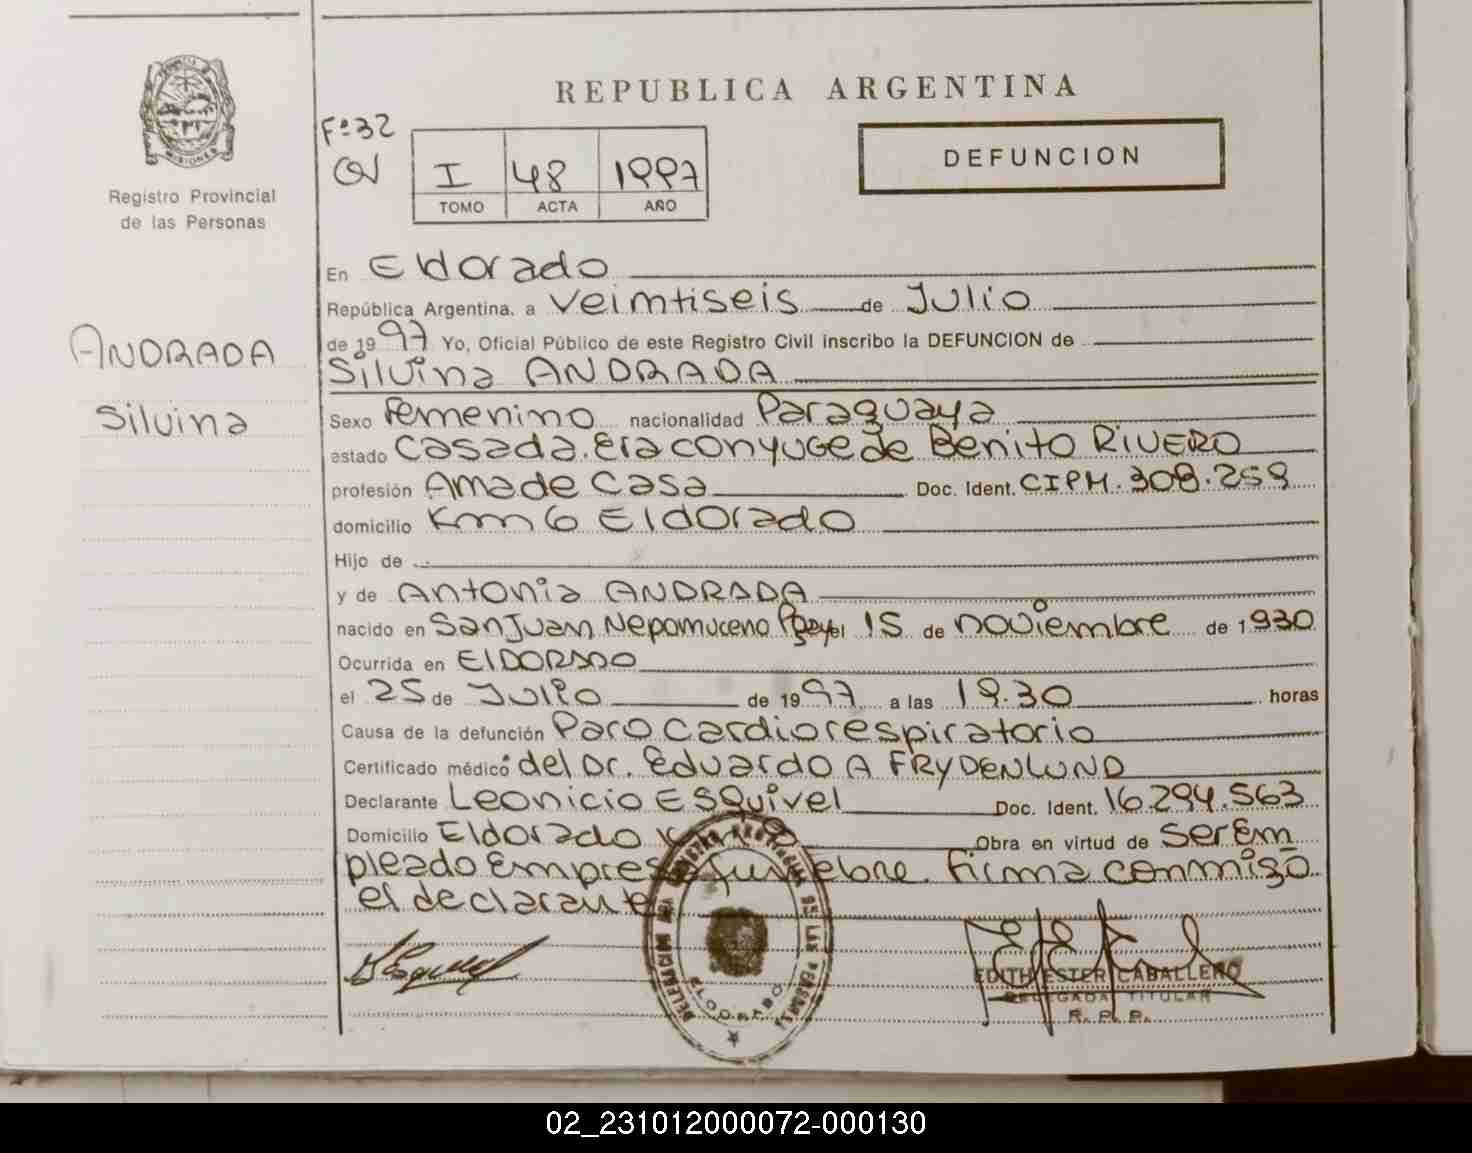 REPUBLICA ARGENTINA
MISIONES
Registro Provincial
de las Personas
Fº32
I 48 1997
TOMO ACTA AÑO
DEFUNCION
ANDRADA
Silvina
En Eldorado
República Argentina, a Veimtiseis de Julio
de 1997 Yo, Oficial Público de este Registro Civil inscribo la DEFUNCION de
Silvina ANDRADA
Sexo Femenino nacionalidad Paraguaya
estado Casada. era conyuge de Benito RIVERO
profesión Ama de Casa Doc. Ident. CIPM. 308.259
domicilio Km 6 Eldorado
Hijo de
y de Antonia ANDRADA
nacido en San Juan Nepomuceno el 15 de noviembre de 1930
Ocurrida en ElDORADO
el 25 de Julio de 1997 a las 19.30 horas
Causa de la defunción Paro Cardiorespiratorio
Certificado médico del Dr. Eduardo A FRYDENLUND
Declarante Leonicio ESquivel Doc. Ident. 16.294.563
Domicilio Eldorado Obra en virtud de Ser Em
pleado Empresa funebre. Firma conmigo
el declarante
DELEGACION REGISTRO PROVINCIAL DE LAS PERSONAS
ELDORADO
EDITH ESTER CABALLERO
DELEGADA TITULAR
R. P. P.
02_231012000072-000130